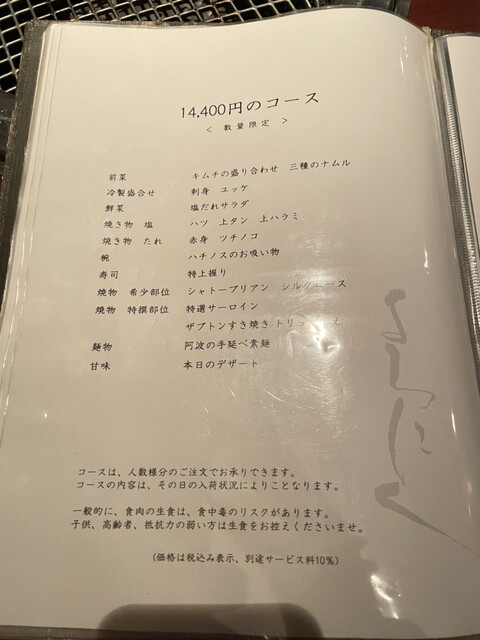 14,400円のコース
< 数量限定 >
前菜 キムチの盛り合わせ 三種のナムル
冷製盛合せ 刺身 ユッケ
鮮菜 塩だれサラダ
焼き物 塩 ハツ 上タン 上ハラミ
焼き物 たれ 赤身 ツチノコ
椀 ハチノスのお吸い物
寿司 特上握り
焼物 希少部位 シャトーブリアン
焼物 特撰部位 特選サーロイン
ザブトンすき焼き
麺物 阿波の手延べ素麺
甘味 本日のデザート
コースは、人数様分のご注文でお承りできます。
コースの内容は、その日の入荷状況によりことなります。
一般的に、食肉の生食は、食中毒のリスクがあります。
子供、高齢者、抵抗力の弱い方は生食をお控えくださいませ。
(価格は税込み表示、別途サービス料10%)